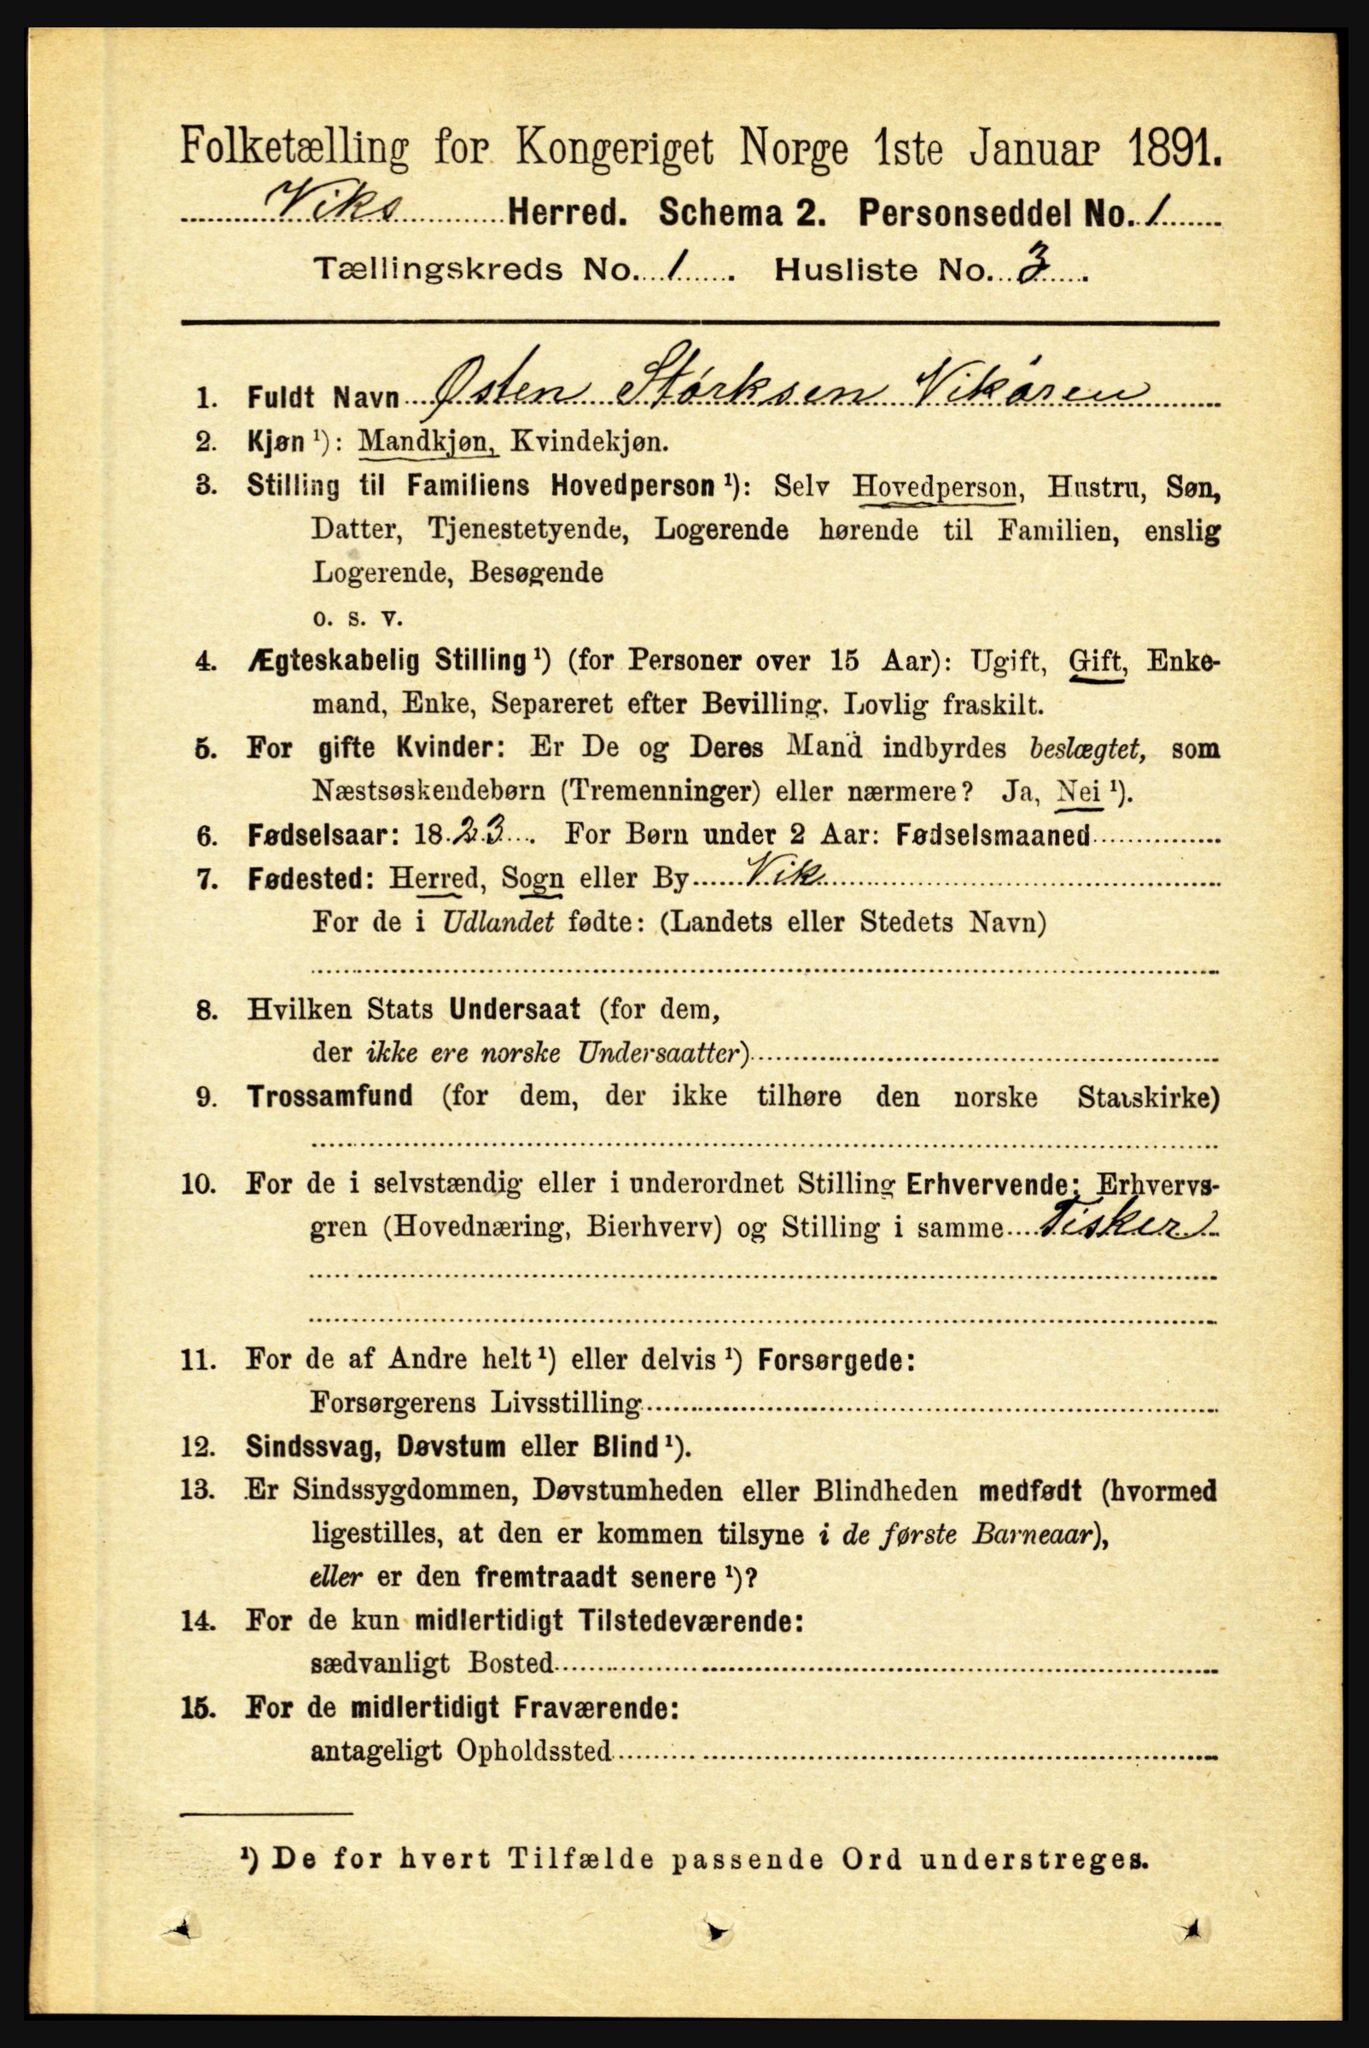 Folketælling for Kongeriget Norge 1ste Januar 1891.
Viks Herred. Schema 2. Personseddel No. 1
Tællingskreds No. 1. Husliste No. 3.
1. Fuldt Navn Østen Størksen Vikøren
2. Kjøn ¹): Mandkjøn, Kvindekjøn.
3. Stilling til Familiens Hovedperson ¹): Selv Hovedperson, Hustru, Søn,
Datter, Tjenestetyende, Logerende hørende til Familien, enslig
Logerende, Besøgende
o. s. v.
4. Ægteskabelig Stilling ¹) (for Personer over 15 Aar): Ugift, Gift, Enke-
mand, Enke, Separeret efter Bevilling. Lovlig fraskilt.
5. For gifte Kvinder: Er De og Deres Mand indbyrdes beslægtet, som
Næstsøskendebørn (Tremenninger) eller nærmere? Ja, Nei ¹).
6. Fødselsaar: 1823. For Børn under 2 Aar: Fødselsmaaned
7. Fødested: Herred, Sogn eller By Vik
For de i Udlandet fødte: (Landets eller Stedets Navn)
8. Hvilken Stats Undersaat (for dem,
der ikke ere norske Undersaatter)
9. Trossamfund (for dem, der ikke tilhøre den norske Statskirke)
10. For de i selvstændig eller i underordnet Stilling Erhvervende: Erhvervs-
gren (Hovednæring, Bierhverv) og Stilling i samme Fisker
11. For de af Andre helt ¹) eller delvis ¹) Forsørgede:
Forsørgerens Livsstilling
12. Sindssvag, Døvstum eller Blind ¹).
13. Er Sindssygdommen, Døvstumheden eller Blindheden medfødt (hvormed
ligestilles, at den er kommen tilsyne i de første Barneaar),
eller er den fremtraadt senere ¹)?
14. For de kun midlertidigt Tilstedeværende:
sædvanligt Bosted
15. For de midlertidigt Fraværende:
antageligt Opholdssted
¹) De for hvert Tilfælde passende Ord understreges.